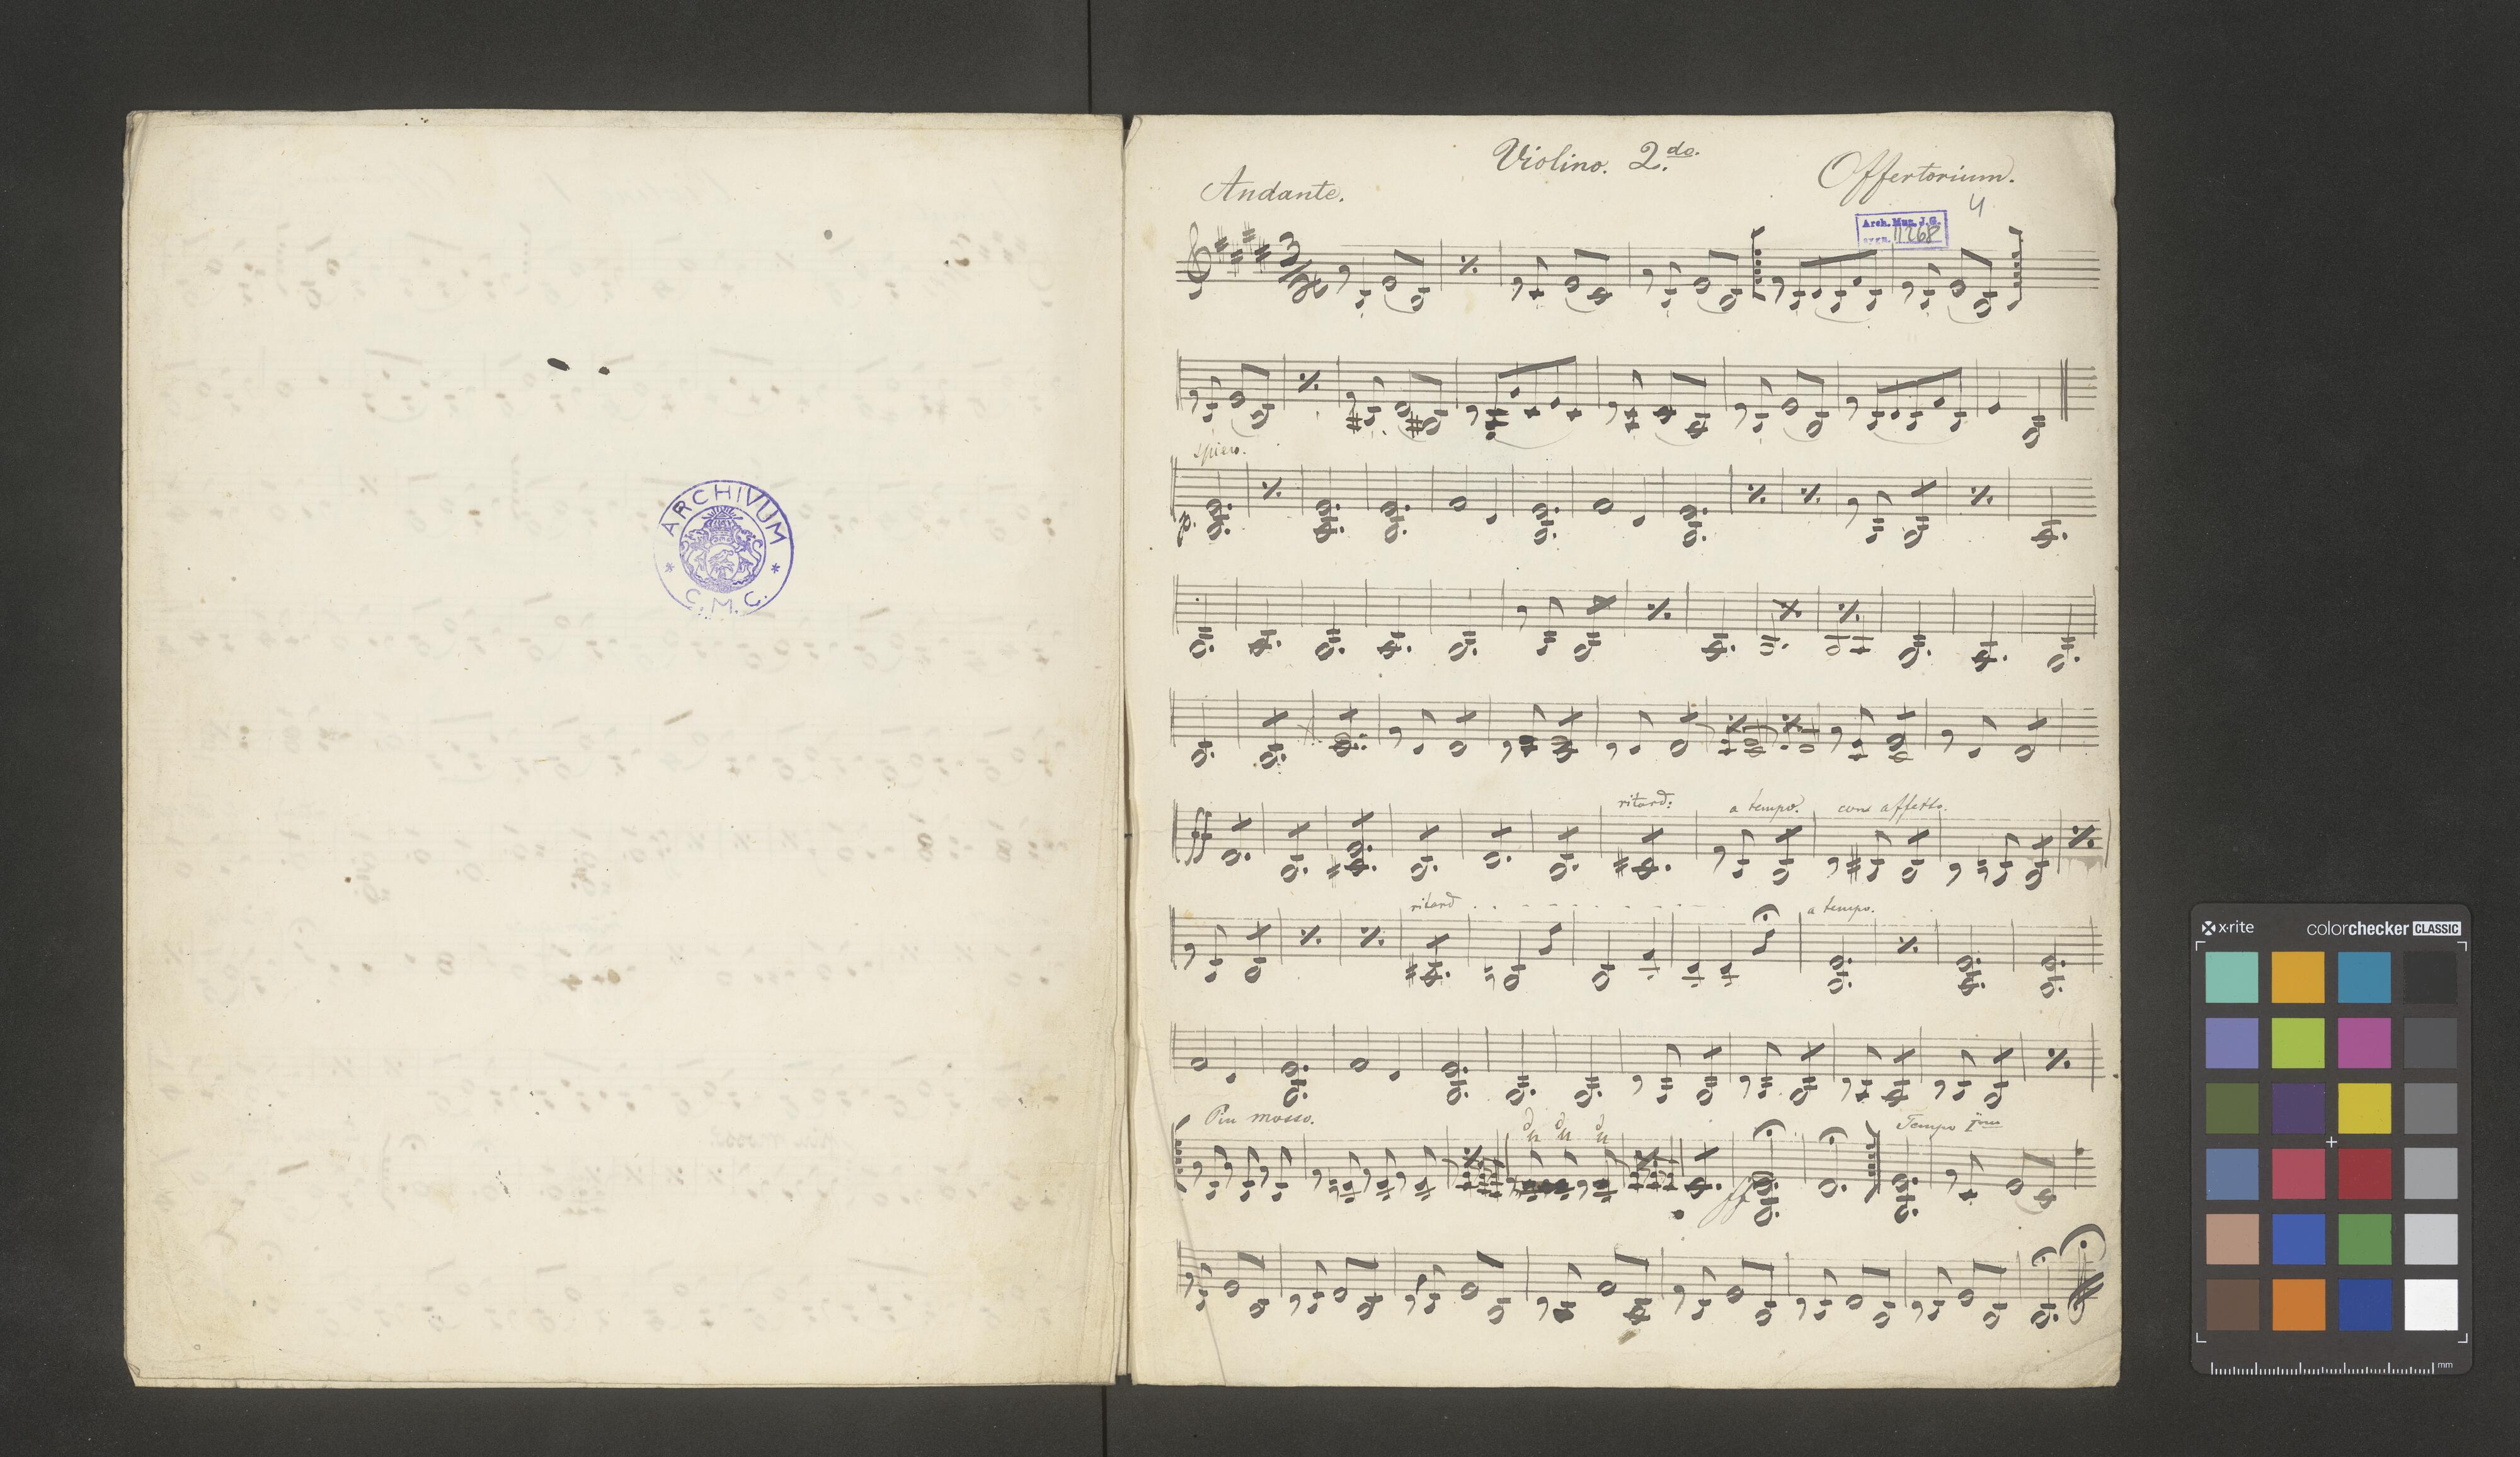 ARCHIVUM
* C. M. C. *
Violino. 2.do.
Offertorium.
Andante.
4
Arch. Muz. J.G.
sygn. 11268
3/4
p.
ff
ritard:
a tempo.
con affetto.
ritard . . - - - - - -
a tempo.
Piu mosso.
Tempo Imo
ff
x·rite
colorchecker CLASSIC
mm